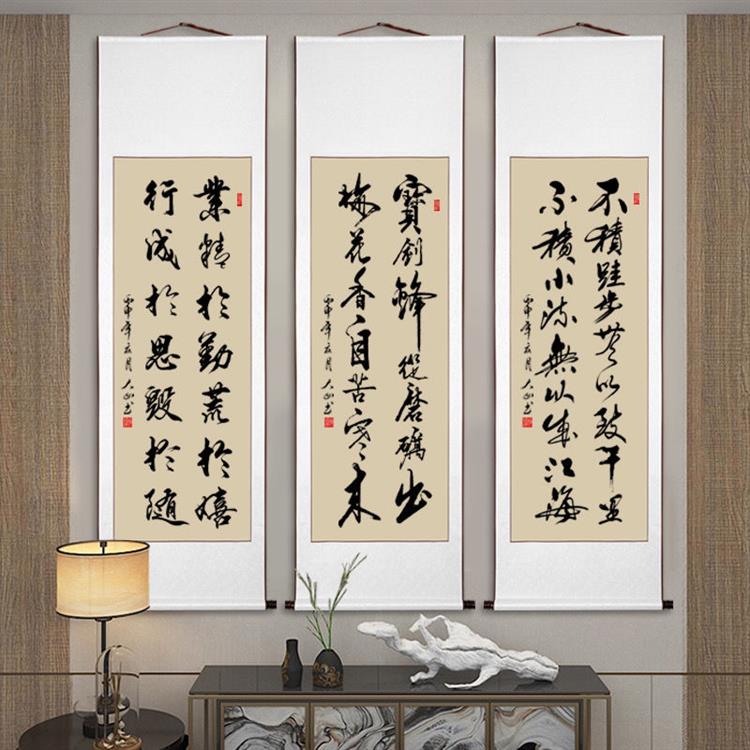 不積跬步無以致千里
不積小流無以成江海
丙申年五月 大山書
寶劍鋒從磨礪出
梅花香自苦寒來
丙申年五月 大山書
業精於勤荒於嬉
行成於思毀於隨
丙申年五月 大山書